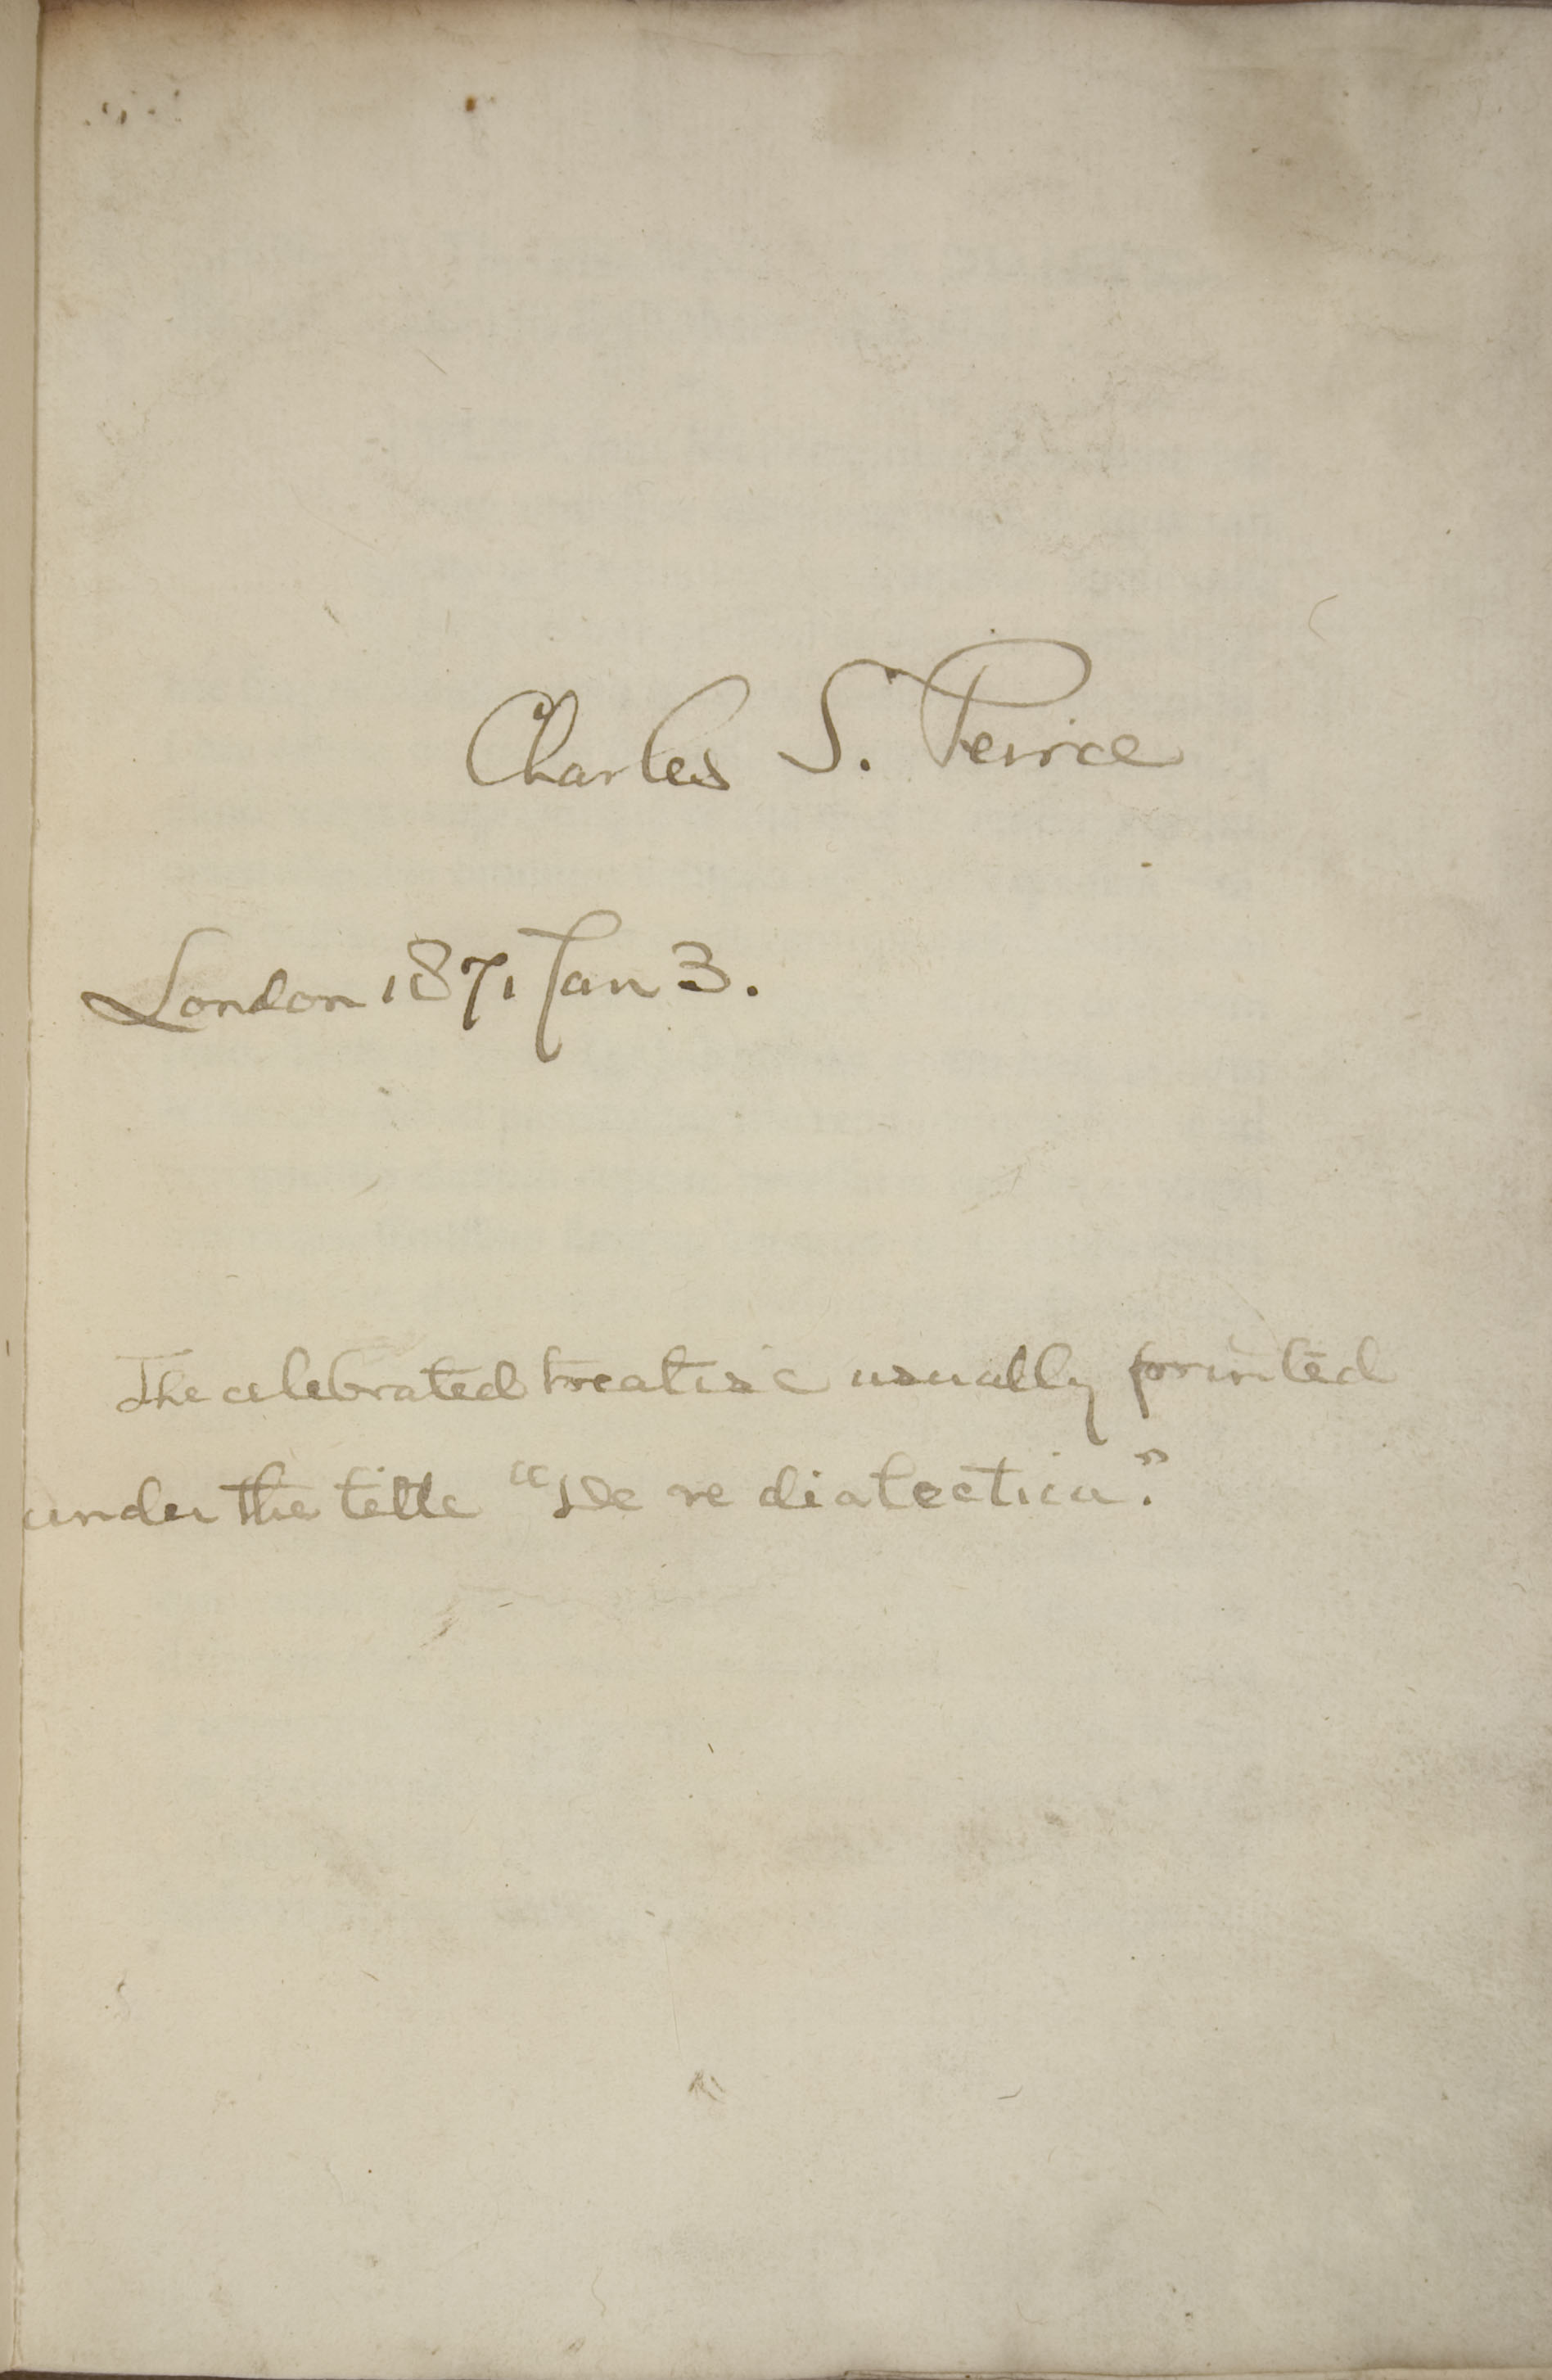 Charles S. Peirce
London 1871 Jan 3.
The celebrated treatise usually printed
under the title "De re dialectica."